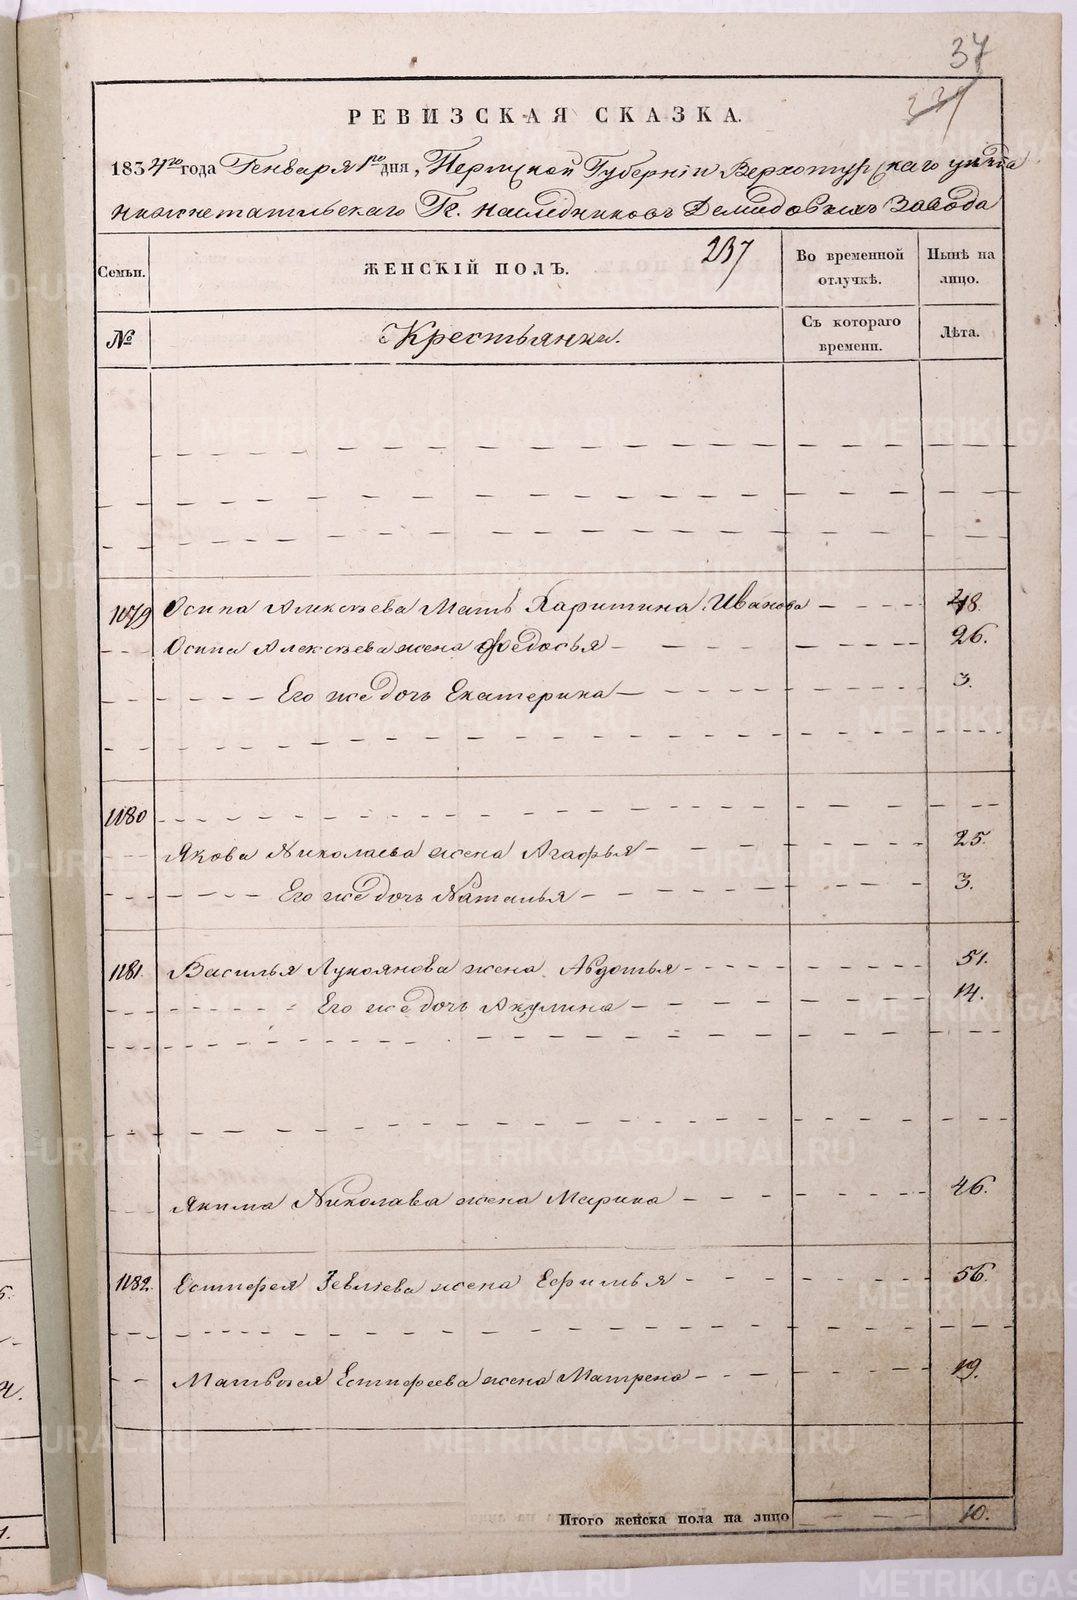 37
237
РЕВИЗСКАЯ СКАЗКА.
1834го года Генваря 1го дня, Пермской Губернiи Верхотурскаго уѣзда
Нижнетагильскаго Гг. Наслѣдниковъ Демидовыхъ Завода
Семьи.
ЖЕНСКIЙ ПОЛЪ.
237
Во временной отлучкѣ.
Нынѣ на лицо.
№
Крестьянки.
Съ котораго времени.
Лѣта.
1079 Осипа Алексѣева Мать Харитина Иванова 48.
Осипа Алексѣева жена Федосья 26.
Его же дочь Екатерина 3.
1180
Якова Николаева жена Агафья 25.
Его же дочь Наталья 3.
1181. Василья Лукоянова жена Авдотья 51.
Его же дочь Акулина 14.
Якима Николаева жена Марина 46.
1182. Естифея жена Ефимья 56.
Матвея Естифеева жена Матрена 19.
Итого женска пола на лицо 10.
METRIKI.GASO-URAL.RU